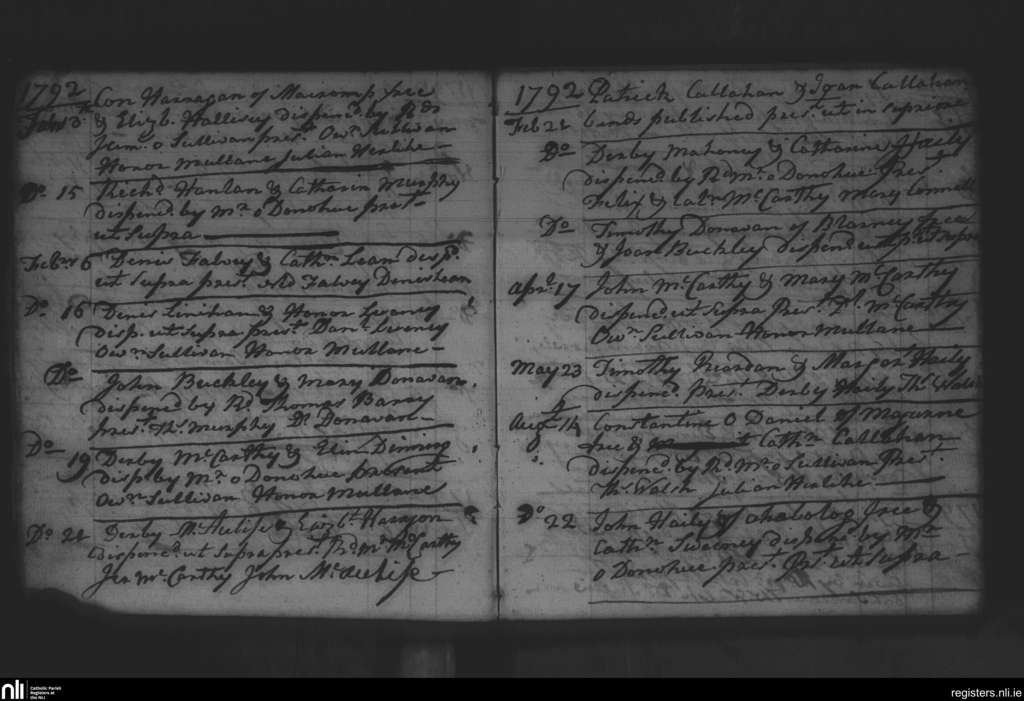 1792
Con Harragan of Macromp free
Feb
& Elizb. Hallisey dispencd. by Rd.
Jam. o Sullivan prest. Own. Sullivan
Honor Mullane Julian Herlihe
Do. 15 Richd. Hanlan & Catharin Murphy
dispencd. by Mr. o Donohue prest.
ut Supra
Denis Falvey & Cathn. Lean disp.
ut Supra prest. Falvey Denis Lean
Do. 16 Denis Linihan & Honor Sweney
disp. ut Supra prest. Danl. Sweney
Own. Sullivan Honor Mullane
Do John Buckley & Mary Donavan
dispencd by Rd. Thomas Barry
pres. Th. Murphy D. Donavan
Do 19 Derby McCarthy & Elin Dinnory
disp by Mr. o Donohue present
Own. Sullivan Honor Mullane
Do 21 Derby McAulife & Elizbt.
dispencd. ut Supra prest. Rd. Mr. McCarthy
Jer McCarthy John McAulife
1792 Patrick Callahan & Joan Callahan
Feb 21 bands published pres. ut in supreme
Do Derby Mahoney & Catharine Haily
dispencd by Rd Mr. o Donohue Pres.
Felix & Catn. McCarthy Mary Connell
Do Timothy Donavan of Blarney free
& Joan Buckley dispend. ut prest supra
Apr. 17 John McCarthy & Mary McCarthy
dispencd. ut Supra Pres. D. McCarthy
Own. Sullivan Honor Mullane
May 23 Timothy Reardan & Margt. Haily
dispencd. Prest. Derby Haily Th. Walsh
Augt. 14 Constantine O Daniel of
free & Cathn. Callahan
dispencd. by Rd. Mr. o Sullivan Prest.
Th. Walsh Julian Herlihe
Do 22 John Haily of free &
Cathn. Sweeney by Mr
o Donohue prest. ut Supra
nli
Catholic Parish
Registers at
the NLI
registers.nli.ie